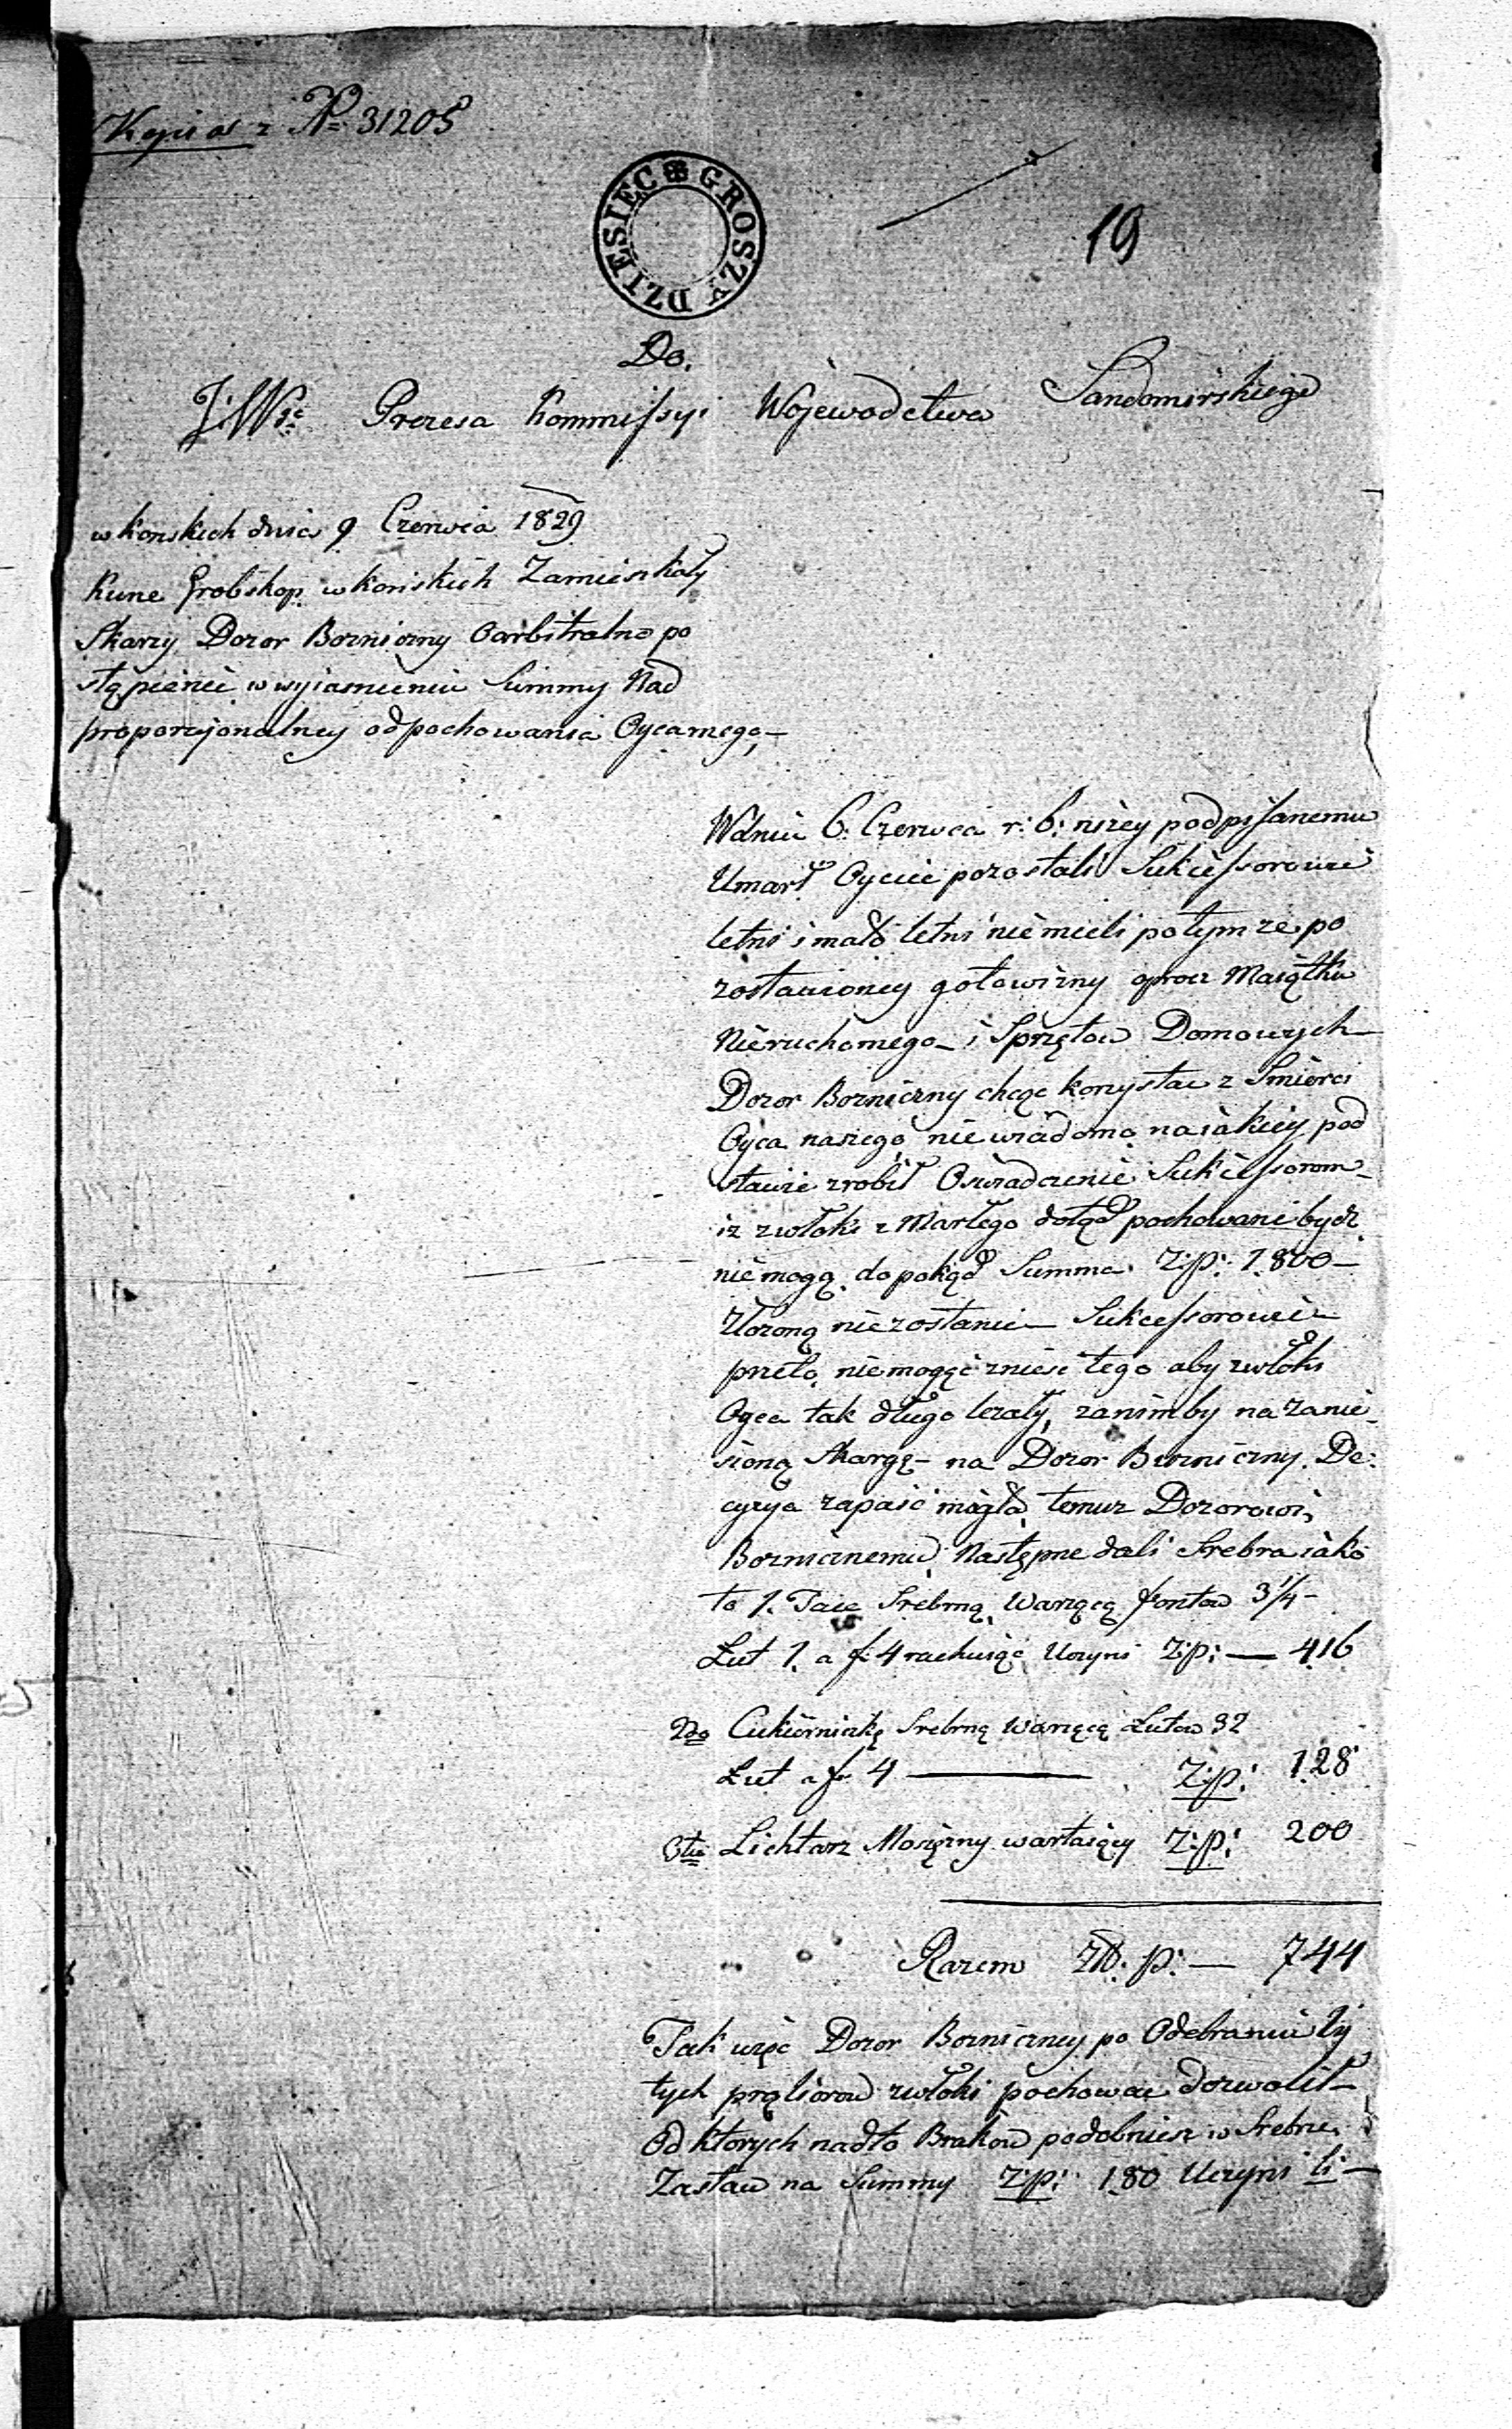 Kopia z Nº 31205
DZIESIĘC GROSZY
19
Do.
JWgo Prezesa Kommissyi Wojewodctwa Sandomirskiego
w konskich dnia 9 Czerwca 1829
Kune Grobskop w Końskich Zamieszkały
Skarzy Dozor Bozniczny Oarbitralne po
stąpienie w wyiasnieniu Summy Nad
proporcyonalney od pochowania Oycamego,—
W dniu 6. Czerwca r: b: niżey podpisanemu
Umarł Oyciec pozostali Sukcessorowie
letni i mało letni nie mieli po tym ze po
zostawioney gotowizny oprocz Maiątku
Nieruchomego – i Sprzętow Domowych –
Dozor Bozniczny chcąc korzystac z Smierci
Oyca naszego niewiadomo na iakiey pod
stawie zrobił Oswiadczenie Sukcessorom –
iz zwłoki zmarłego dotąd pochowane bydz
nie mogą, do pokąd Summa Z:p: 1800 –
Złozoną nie zostanie – Sukcessorowie
przeto, nie mogąc zniesc tego aby zwłoki
Oyca tak długo lezały, zanimby na zanie
sioną Skargę – na Dozor Bozniczny De:
cyzya zapaść mogła, temuz Dozorowi,
Bozniczemu Następne dali Srebra iako
to 1. Tace Srebrną Wazącą fontow 3 1/4 –
Łut 1. a f: 4 rachuiąc Uczyni Z:p: — 416
2do Cukierniczkę Srebrną Wazącą Łutow 32
Łut a f 4 ——— Z:p: 128
3tie Lichtarz Mosiężny wartaiący Z:p: 200
Razem Złł: p: — 744
Tak więc Dozor Bozniczney po Odebraniu ty
tych zwłoki pochowac dozwolił –
Od ktorych nadto Brakow podobniesz w Srebrze
Zastaw na Summy Z:p: 180 Uczyni li –